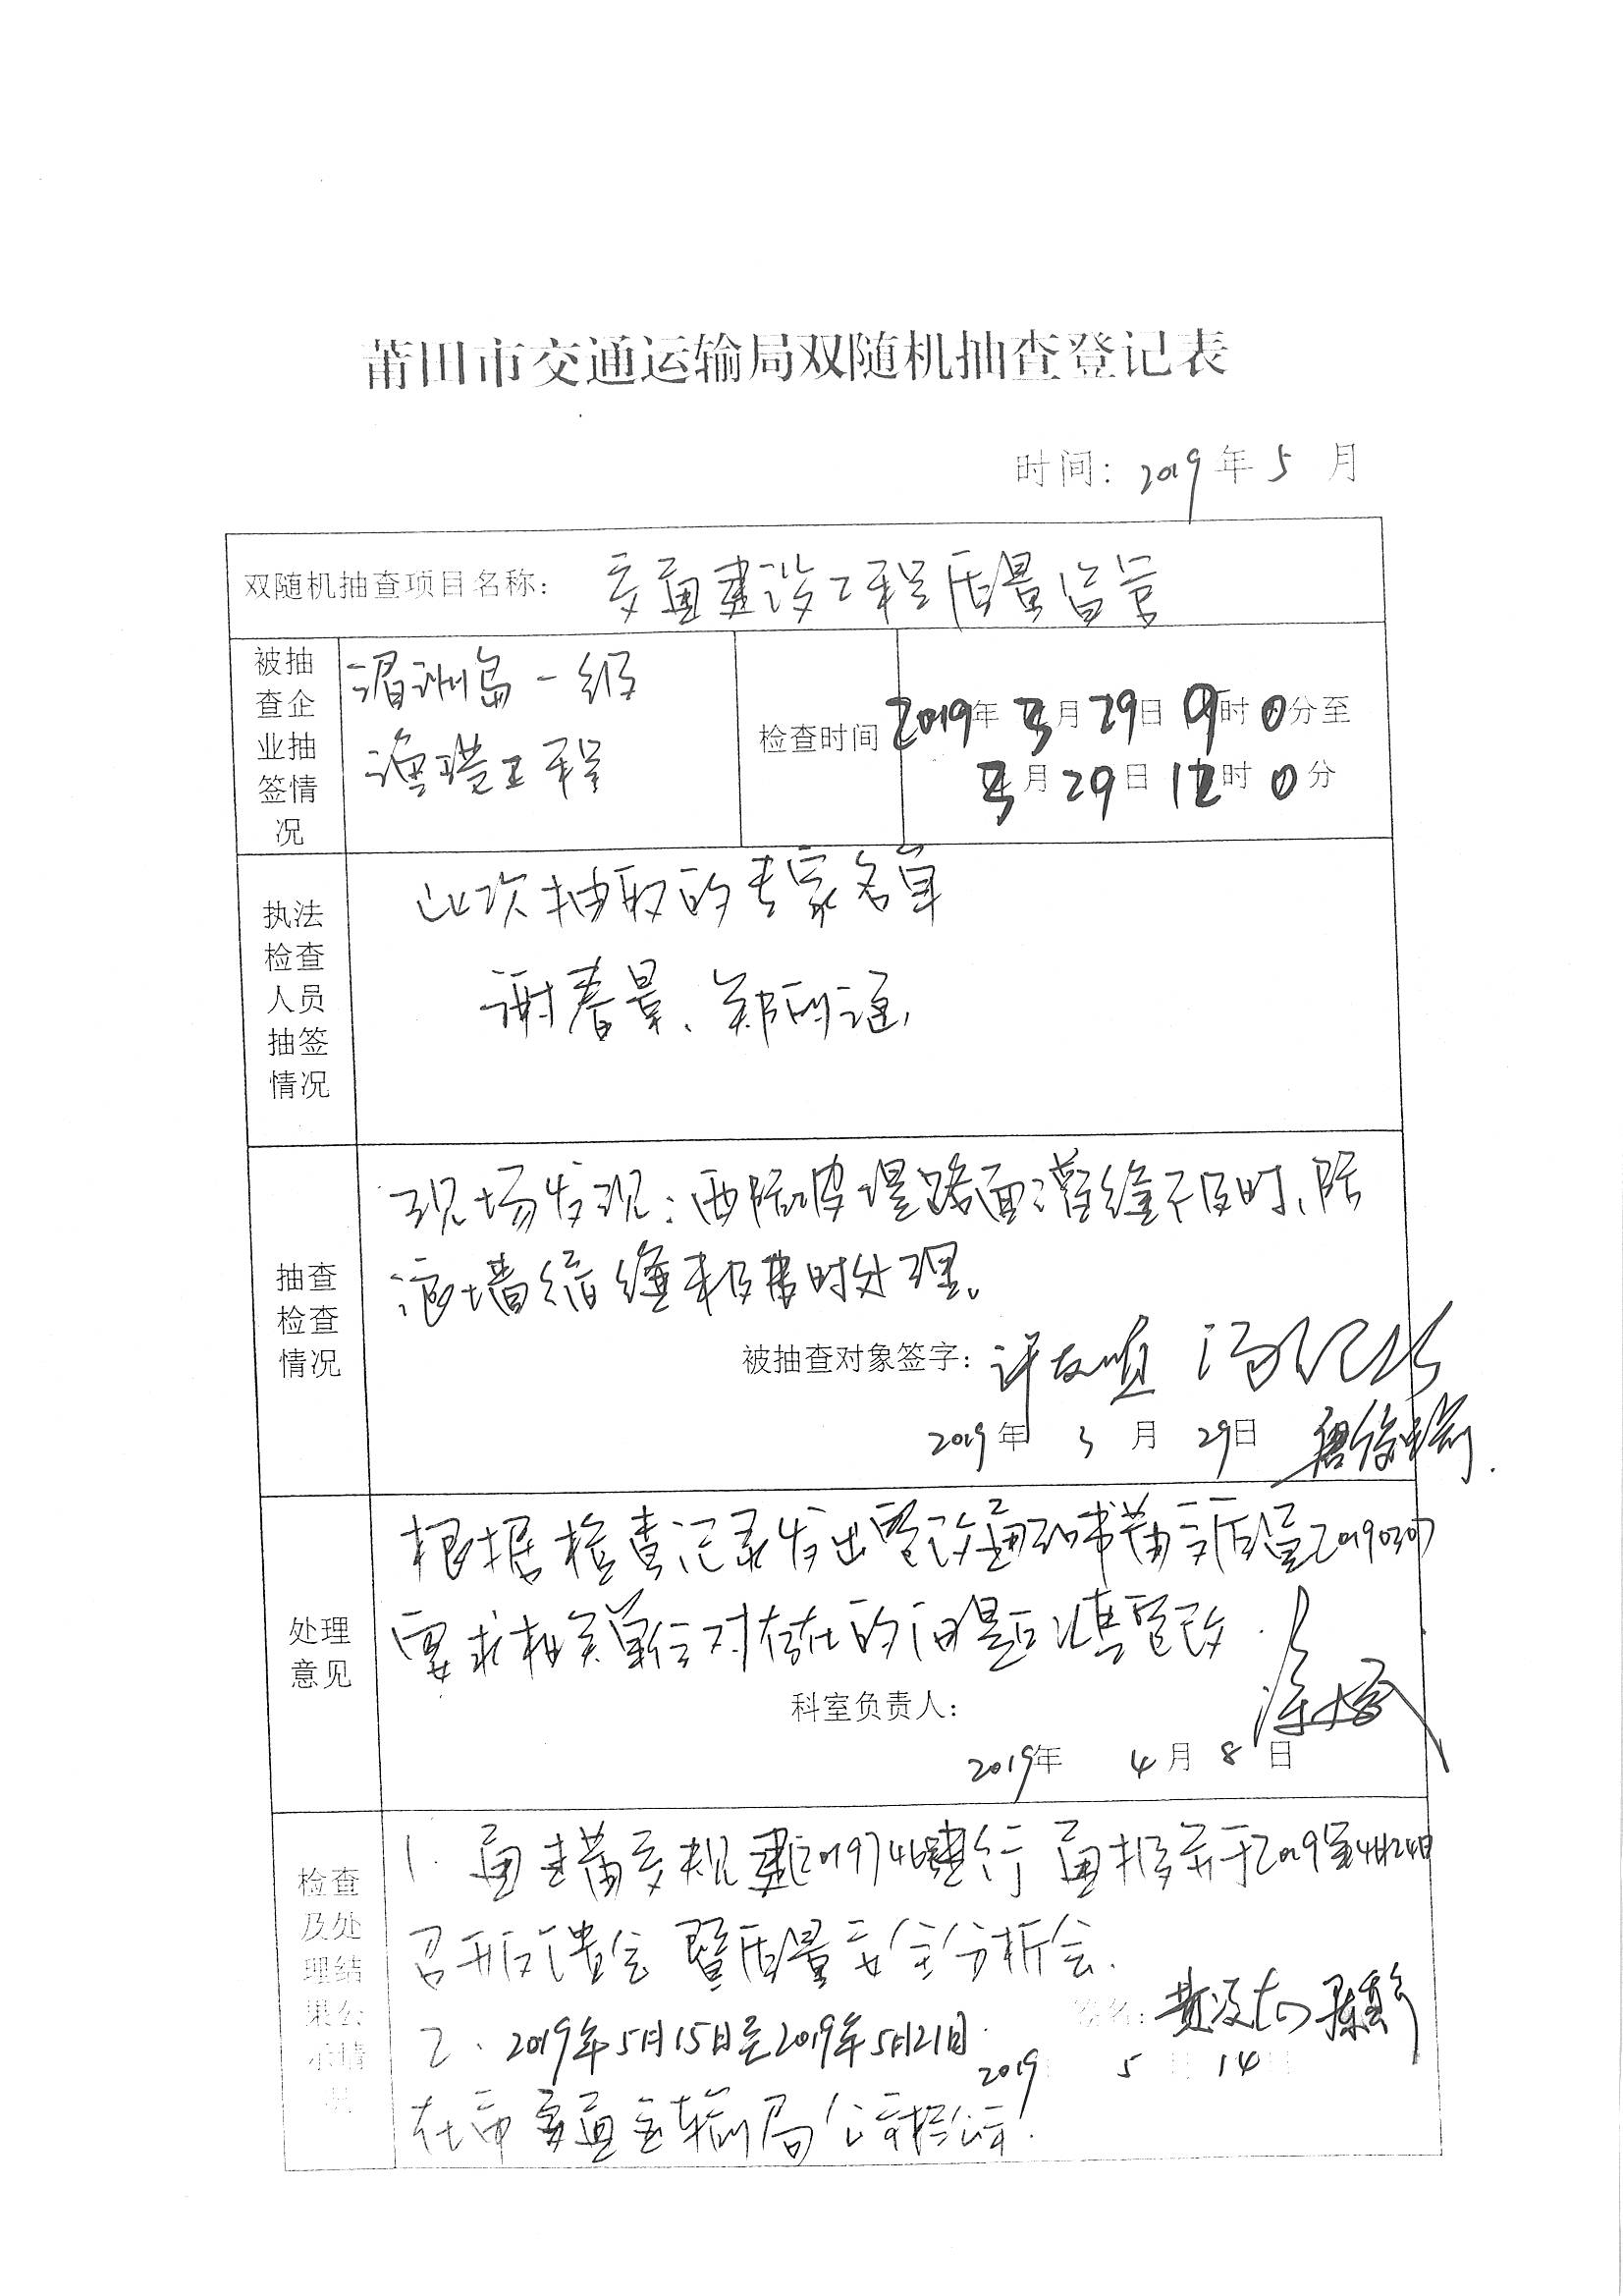 莆田市交通运输局双随机抽查登记表
时间：2019年5月
双随机抽查项目名称：交通建设工程质量监管
被抽
查企
业抽
签情
况
湄洲岛一级
渔港工程
检查时间
2019年3月29日9时0分至
3月29日12时0分
执法
检查
人员
抽签
情况
此次抽取的专家名单
谢春景、郑
抽查
检查
情况
现场发现：西防波堤路面灌缝不及时、防
浪墙结缝未及时处理。
被抽查对象签字：许友顺
2019年3月29日
处理
意见
根据检查记录发出整改通知书莆交质量
要求相关单位对存在的问题认真整改.
科室负责人：
2019年4月8日
检查
及处
理结
果公
示情
况
1.通过莆交规建[2019]74进行通报并于2019年4月24日
召开反馈会暨质量安全分析会.
签名：
2、2019年5月15日至2019年5月21日
2019 5 14
在市交通运输局公示栏公示.